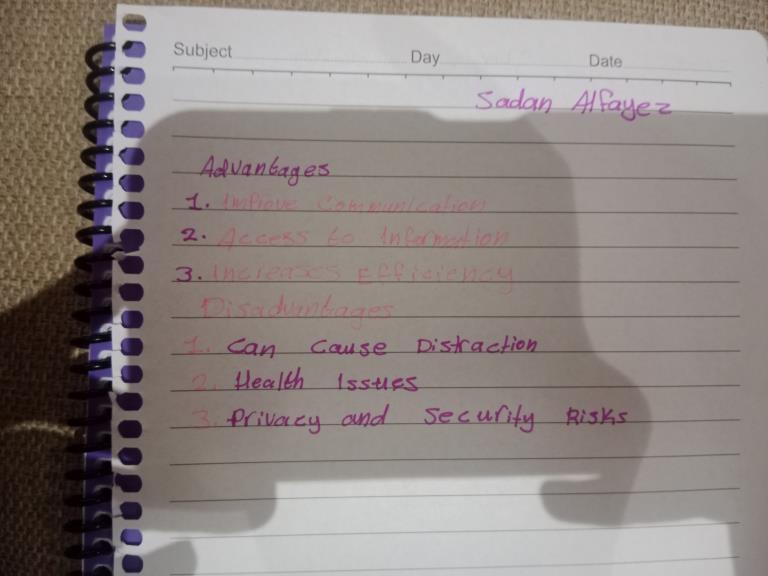 Subject Day Date
Sadan Alfayez
Advantages
1. Improve Communication
2. Access to Information
3. Increases Efficiency
Disadvantages
1. Can Cause Distraction
2. Health Issues
3. Privacy and Security Risks